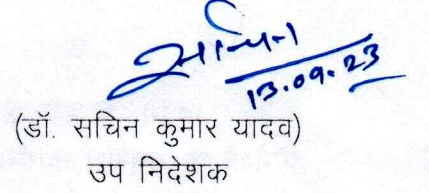 सचिन
13.09.23
(डॉ. सचिन कुमार यादव)
उप निदेशक